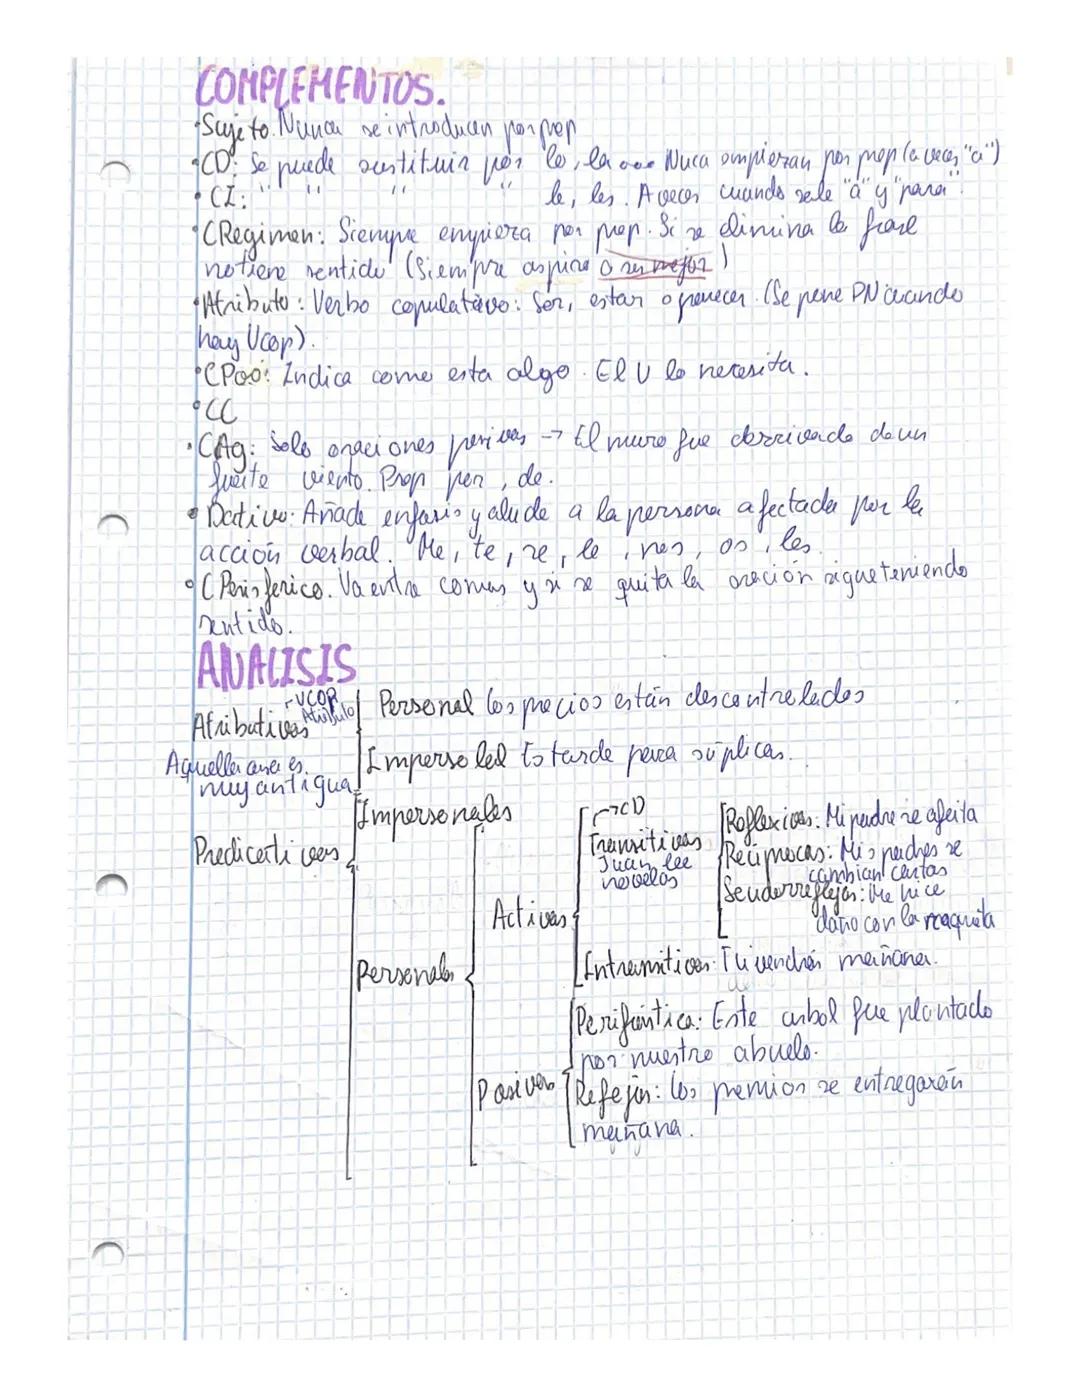 COMPLEMENTOS.
·Sujeto. Nunca se introducen por prep
·CD: Se puede sustituir por lo, la ... Nuca empiezan por prep (a veces "a")
·CI: " " " " le, les. A veces cuando sale "a" y "para".
·CRegimen: Siempre empieza por prep. Si se elimina la frase
no tiene sentido (Siempre aspira a ser mejor)
·Atributo: Verbo copulativo: Ser, estar o parecer. (Se pone PN cuando
hay Vcop).
·CPvo: Indica como esta algo. El V lo necesita.
·CC
·CAg: Solo oraciones pasivas → El muro fue derrivado de un
fuerte viento. Prep por, de.
·Dativo: Añade enfasis y alude a la persona afectada por la
acción verbal. Me, te, se, le, nos, os, les.
·C Periferico. Va entre comas y si se quita la oración sigue teniendo
sentido.
ANALISIS
Atributivas VCOP Atributo Personal Los precios están descontrolados
Aquella casa es muy antigua Impersolal Es tarde para súplicas.
Predicativas
Impersonales
Personales
Activas
Transitivas → CD
Juan lee
novelas
Reflexivas: Mi padre se afeita
Recíprocas: Mis padres se
cambian cartas
Seudorreflejas: Me hice
daño con la maquita
Intransitivas: Tú vendrás mañana.
Pasivas
Perifrástica: Este arbol fue plantado
por nuestro abuelo.
Reflejas: Los premios se entregarán
mañana.